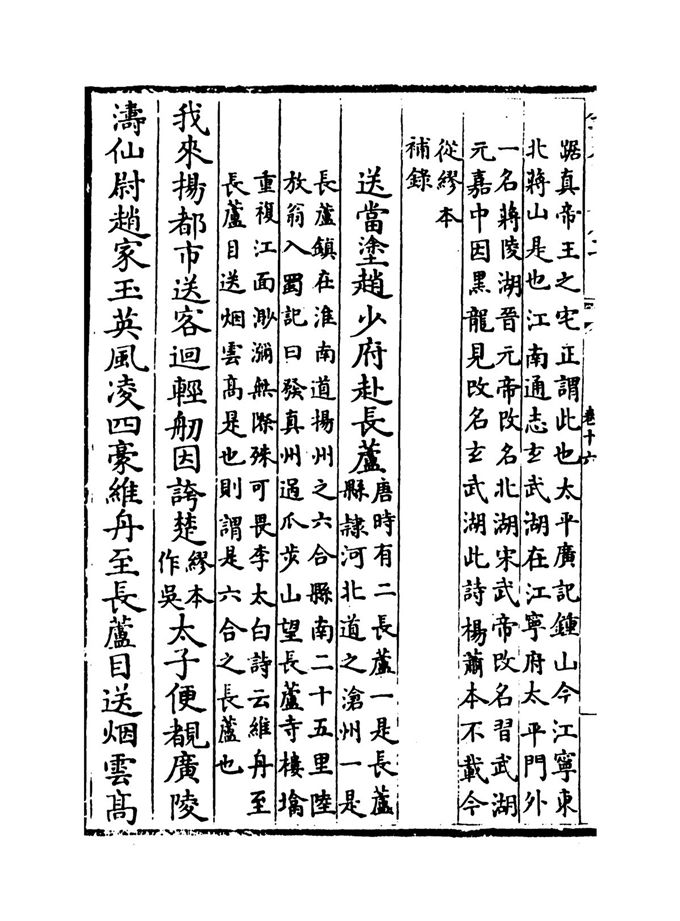 踞真帝王之宅正謂此也太平廣記鍾山今江寧東
北蔣山是也江南通志玄武湖在江寧府太平門外
一名蔣陵湖晉元帝改名北湖宋武帝改名習武湖
元嘉中因黑龍見改名玄武湖此詩楊蕭本不載今
從繆本
補錄
送當塗趙少府赴長蘆唐時有二長蘆一是長蘆
縣隷河北道之滄州一是
長蘆鎮在淮南道揚州之六合縣南二十五里陸
放翁入蜀記曰發真州過爪步山望長蘆寺樓墖
重複江面渺瀰無際殊可畏李太白詩云維舟至
長蘆目送烟雲髙是也則謂是六合之長蘆也
我來揚都市送客迴輕舠因誇楚繆本
作吳太子便覩廣陵
濤仙尉趙家玉英風凌四豪維舟至長蘆目送烟雲髙
卷十六